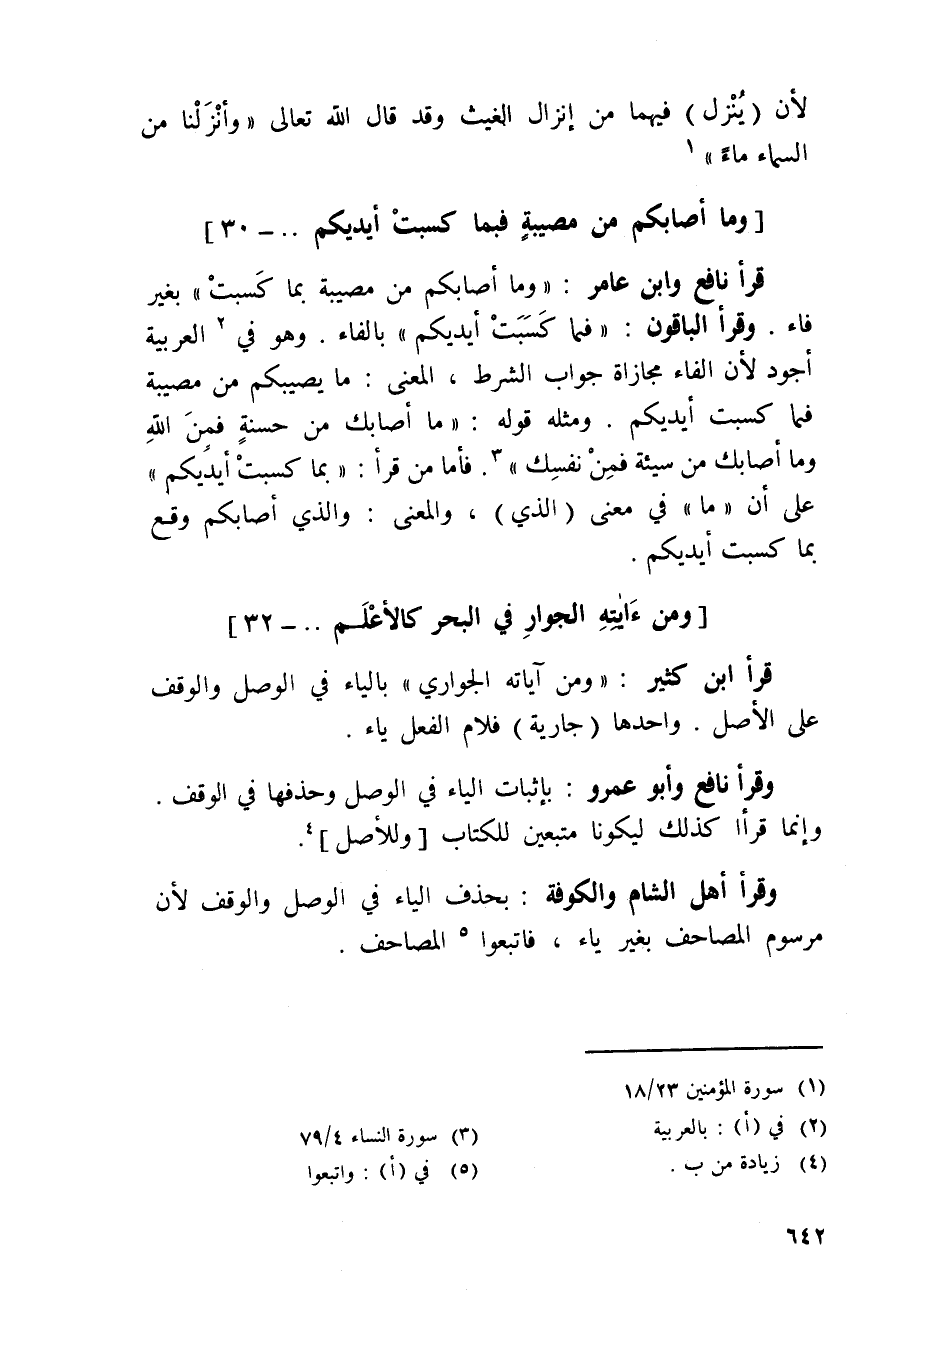 لأن (يُنْزل) فيهما من إنزال الغيث وقد قال الله تعالى « وأنْزَلْنا من
السماء ماءً » ١
[ وما أصابكم من مصيبةٍ فبما كسبتْ أيديكم .. – ٣٠ ]
قرأ نافع وابن عامر : « وما أصابكم من مصيبة بما كَسبتْ » بغير
فاء . وقرأ الباقون : « فبما كَسَبَتْ أيديكم » بالفاء . وهو في ٢ العربية
أجود لأن الفاء مجازاة جواب الشرط ، المعنى : ما يصيبكم من مصيبة
فبما كسبت أيديكم . ومثله قوله : « ما أصابك من حسنةٍ فمِنَ اللهِ
وما أصابك من سيئة فمِنْ نفسِك » ٣. فأما من قرأ : « بما كسبتْ أيديكم »
على أن « ما » في معنى (الذي) ، والمعنى : والذي أصابكم وقع
بما كسبت أيديكم .
[ ومن ءَايَٰتِهِ الجوارِ في البحر كالأعْلَـم .. – ٣٢ ]
قرأ ابن كثير : « ومن آياته الجواري » بالياء في الوصل والوقف
على الأصل . واحدها (جارية) فلام الفعل ياء .
وقرأ نافع وأبو عمرو : بإثبات الياء في الوصل وحذفها في الوقف .
وإنما قرأا كذلك ليكونا متبعين للكتاب [ وللأصل ]٤.
وقرأ أهل الشام والكوفة : بحذف الياء في الوصل والوقف لأن
مرسوم المصاحف بغير ياء ، فاتبعوا ٥ المصاحف .
(١) سورة المؤمنين ١٨/٢٣
(٢) في (أ) : بالعربية
(٣) سورة النساء ٧٩/٤
(٤) زيادة من ب .
(٥) في (أ) : واتبعوا
٦٤٢